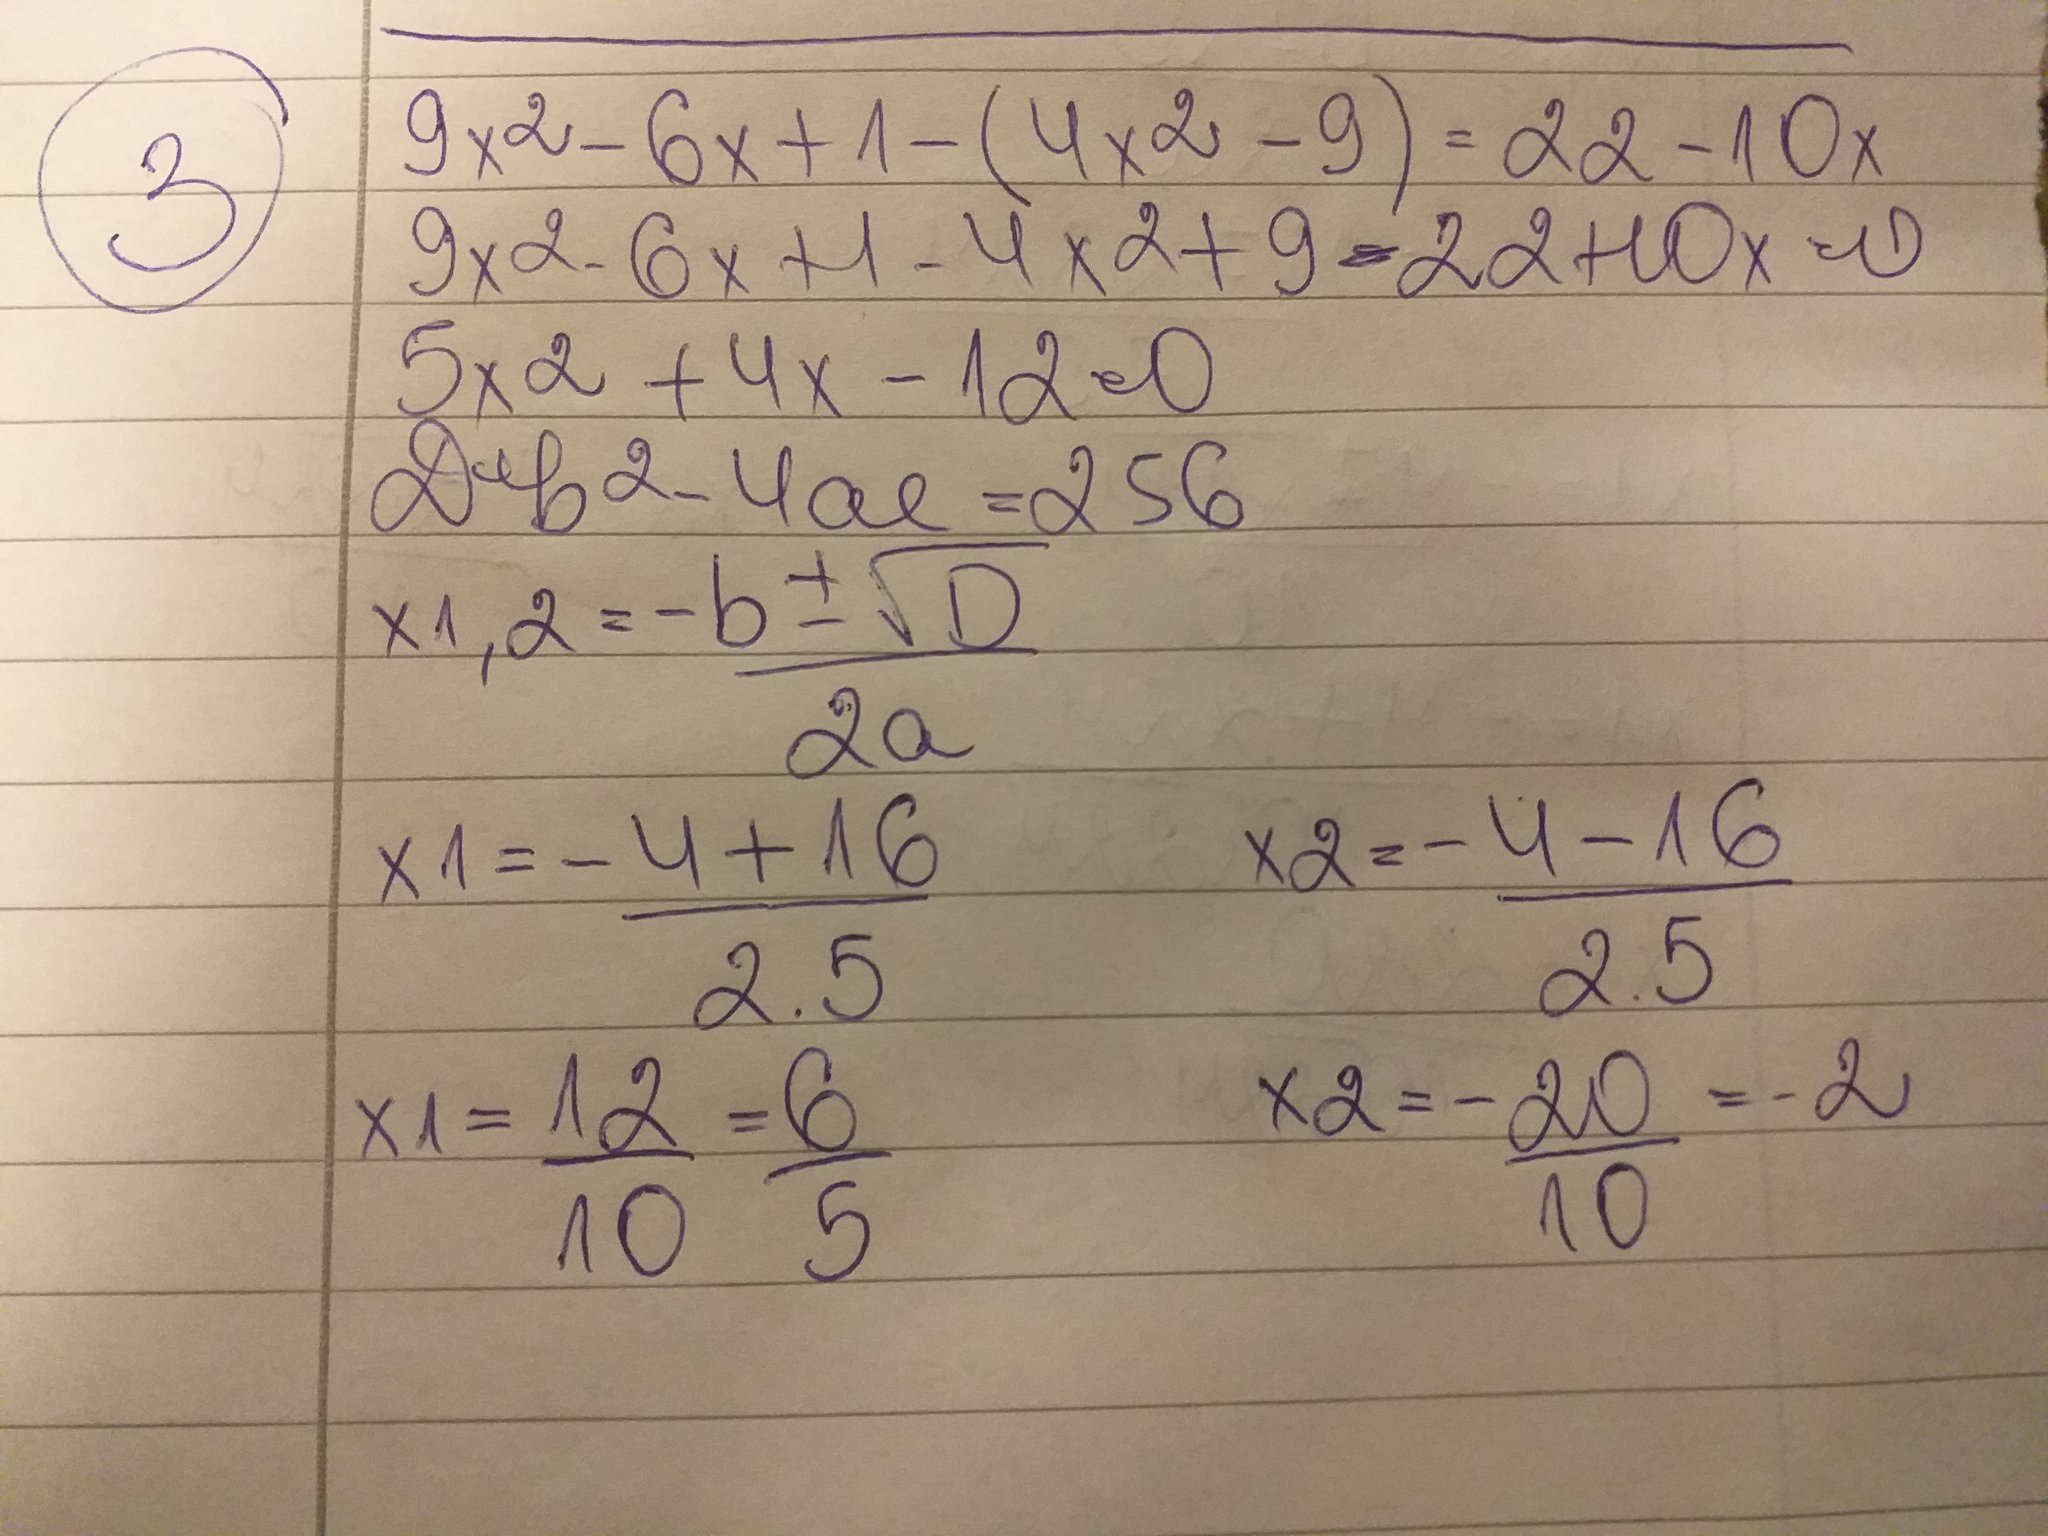 3
9x2-6x+1-(4x2-9)=22-10x
9x2-6x+1-4x2+9-22+10x=0
5x2+4x-12=0
D=b2-4ac=256
x1,2=-b±√D
2a
x1=-4+16 x2=-4-16
2.5 2.5
x1=12=6 x2=-20=-2
10 5 10